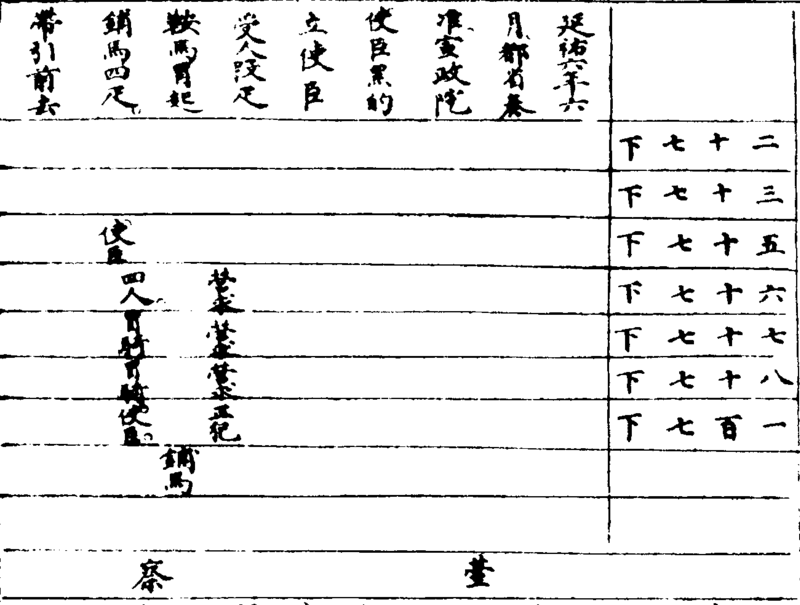 延祐六年六
月都省奏
准宣政院
使臣黑的
立使臣
受人段疋
鞍馬冒起
鋪馬四疋
帶引前去
二十七下
三十七下
五十七下
六十七下
七十七下
八十七下
一百七下
鋪馬
使臣
四人冒騎冒騎使臣
臺察